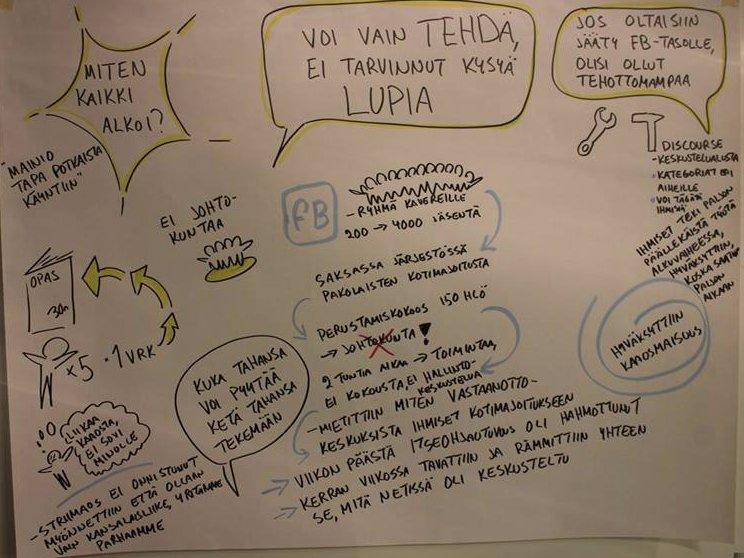 MITEN
KAIKKI
ALKOI?
"MAINIO
TAPA POTKAISTA
KÄYNTIIN"
VOI VAIN TEHDÄ,
EI TARVINNUT KYSYÄ
LUPIA
JOS OLTAISIIN
JÄÄTY FB-TASOLLE,
OLISI OLLUT
TEHOTTOMAMPAA
DISCOURSE
- KESKUSTELUALUSTA
• KATEGORIAT ERI
AIHEILLE
• VOI TÄGÄTÄ
IHMISIÄ
IHMISET TEKI PALJON
PÄÄLLEKÄISTÄ TYÖTÄ
ALKUVAIHEESSA,
HYVÄKSYTTIIN,
KOSKA SAATIIN
PALJON
AIKAAN
HYVÄKSYTTIIN
KAAOSMAISUUS
EI JOHTO-
KUNTAA
FB
- RYHMÄ KAVEREILLE
200 → 4000 JÄSENTÄ
SAKSASSA JÄRJESTÖSSÄ
PAKOLAISTEN KOTIMAJOITUSTA
PERUSTAMISKOKOOS 150 HLÖ
→ JOHTOKUNTA!
2 TUNTIA AIKAA → TOIMINTAA,
EI KOKOUSTA, EI HALLINTO-
KESKUSTELUA
- MIETITTIIN MITEN VASTAANOTTO-
KESKUKSISTA IHMISET KOTIMAJOITUKSEEN
→ VIIKON PÄÄSTÄ ITSEOHJAUTUVUUS OLI HAHMOTTUNUT
→ KERRAN VIIKOSSA TAVATTIIN JA RÄMMITTIIN YHTEEN
SE, MITÄ NETISSÄ OLI KESKUSTELTU
OPAS
30n
x5 • 1 VRK
KUKA TAHANSA
VOI PYYTÄÄ
KETÄ TAHANSA
TEKEMÄÄN
LIIKAA
KAAOSTA,
EI SOVI
MINULLE
- STRIIMAUS EI ONNISTUNUT
MYÖNNETTIIN ETTÄ OLLAAN
VAIN KANSALAISLIIKE, YRITÄMME
PARHAAMME